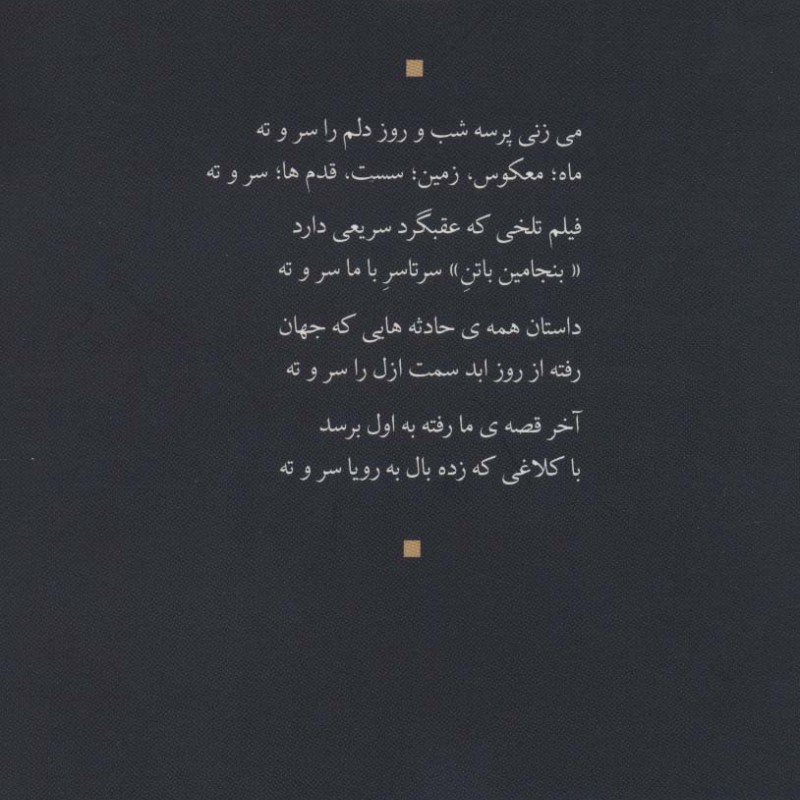 می زنی پرسه شب و روز دلم را سر و ته
ماه؛ معکوس، زمین؛ سست، قدم ها؛ سر و ته
فیلم تلخی که عقبگرد سریعی دارد
« بنجامین باتنِ» سرتاسرِ با ما سر و ته
داستان همه ی حادثه هایی که جهان
رفته از روز ابد سمت ازل را سر و ته
آخر قصه ی ما رفته به اول برسد
با کلاغی که زده بال به رویا سر و ته